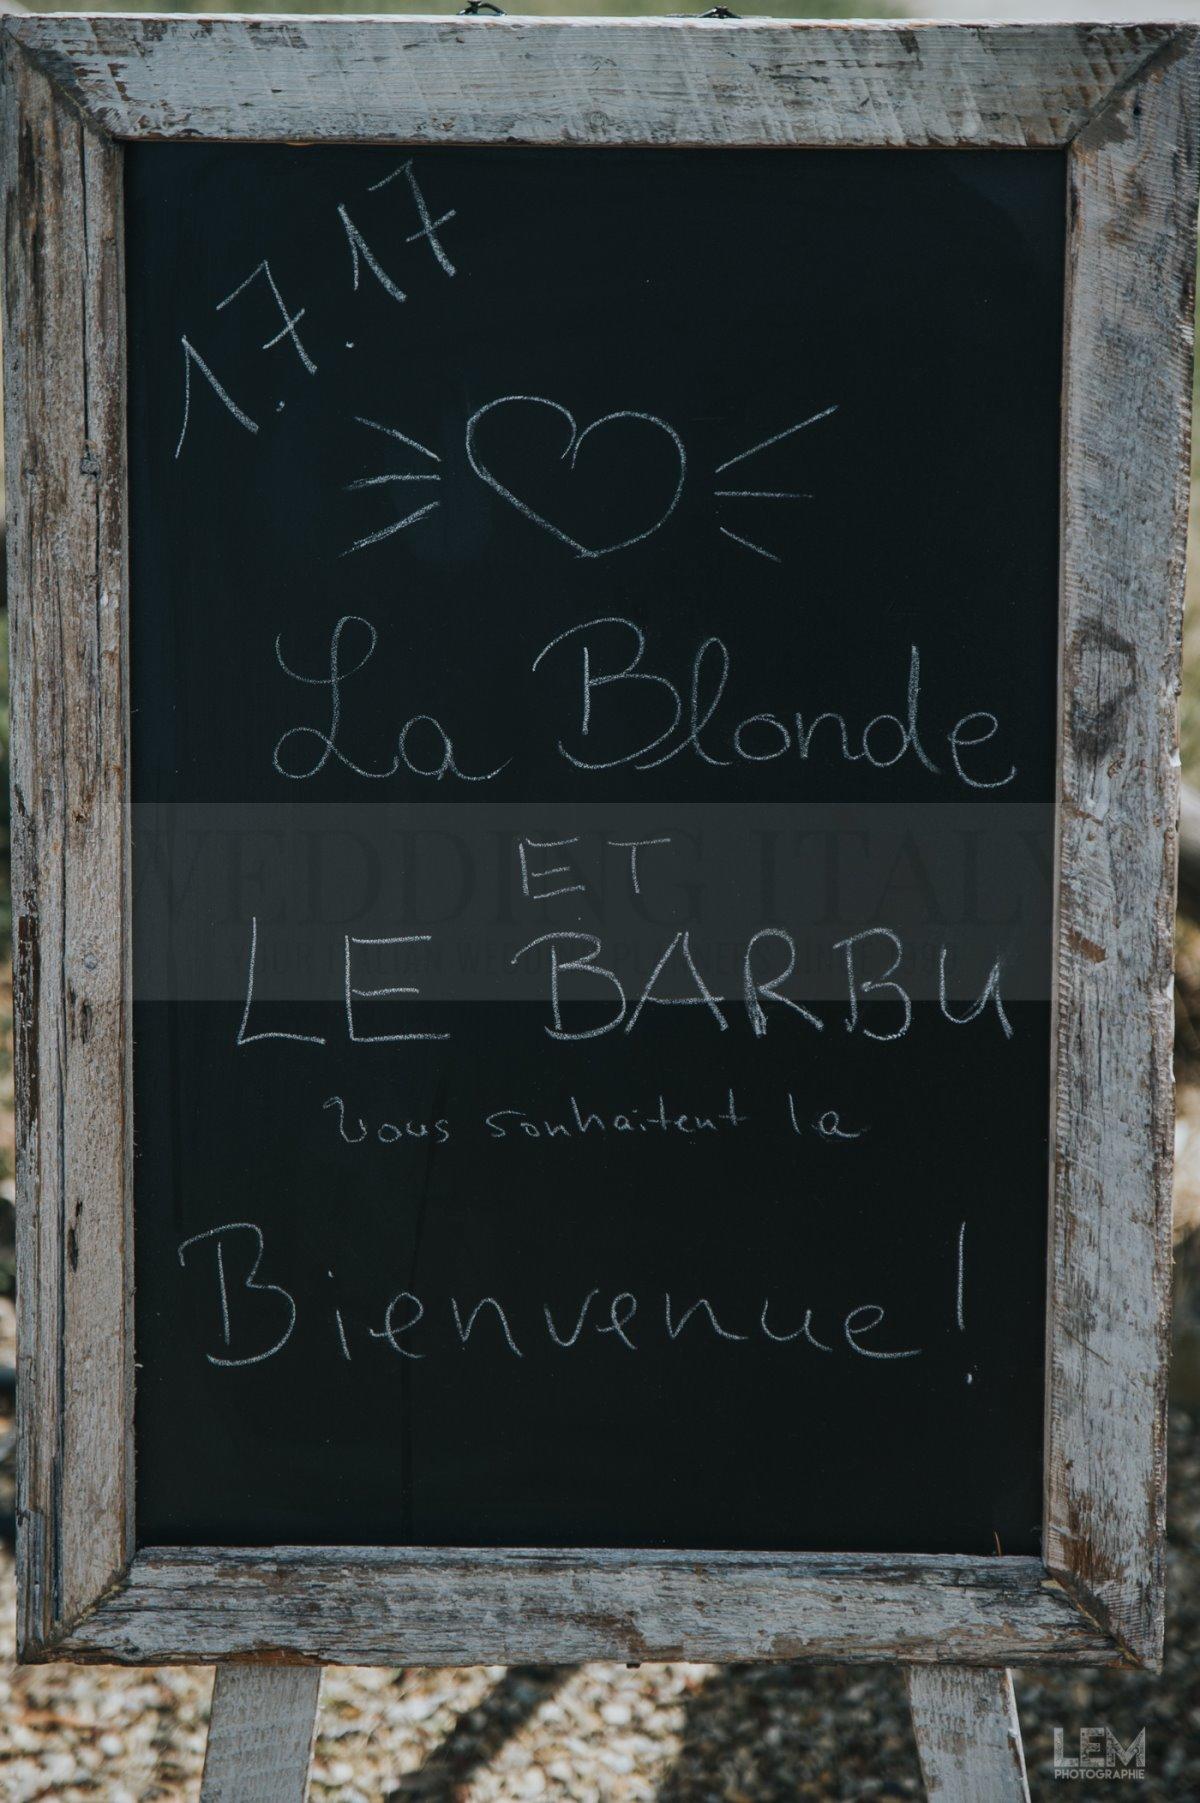 1.7.17
La Blonde
ET
LE BARBU
vous souhaitent la
Bienvenue!
WEDDING ITALY
YOUR ITALIAN WEDDING PLANNERS SINCE
LEM
PHOTOGRAPHIE